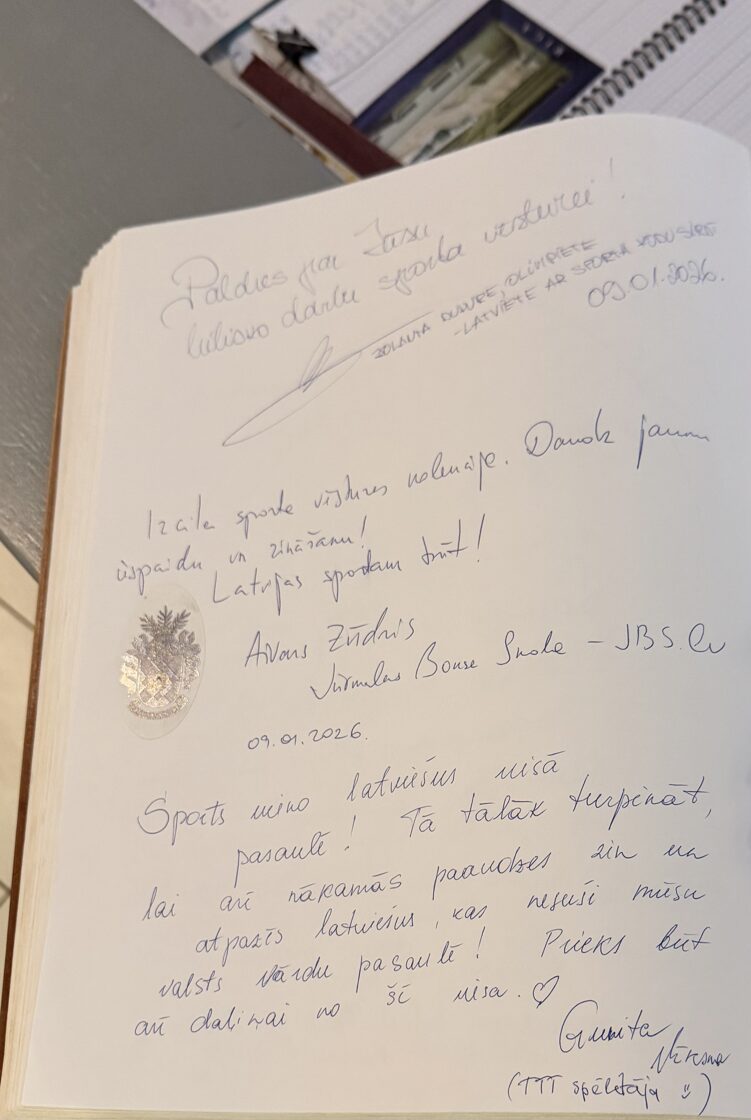 Paldies par Jūsu
lielisko darbu sporta vēsturei!
OLIMPIETE
- LATVIETE AR SPORTA
09.01.2026.
Izcila sporta vēstures kolekcija. Daudz jaunu
iespaidu un zināšanu!
Latvijas sportam būt!
Aivars Zīdris
Jūrmalas Boksa Skola - JBS.lv
09.01.2026.
Sports vieno latviešus visā
pasaulē! Tā tālāk turpināt,
lai arī nākamās paaudzes zin un
atpazīs latviešus, kas nesuši mūsu
valsts vārdu pasaulē! Prieks būt
arī daļiņai no šī visa. ♡
Gunita
(TTT spēlētāja :))